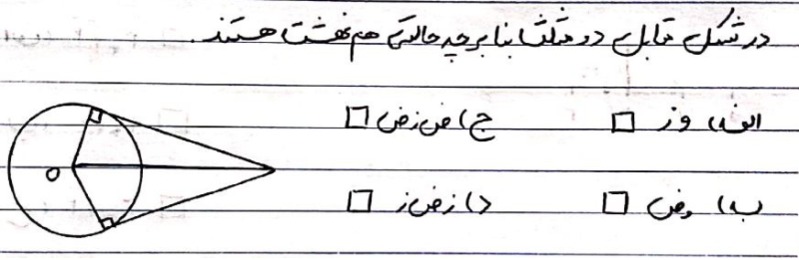 در شکل مقابل دو مثلث بنا بر چه حالتی هم نهشت هستند.
الف) وز □ ج) ض ز ض □
ب) وض □ د) ز ض ز □
O